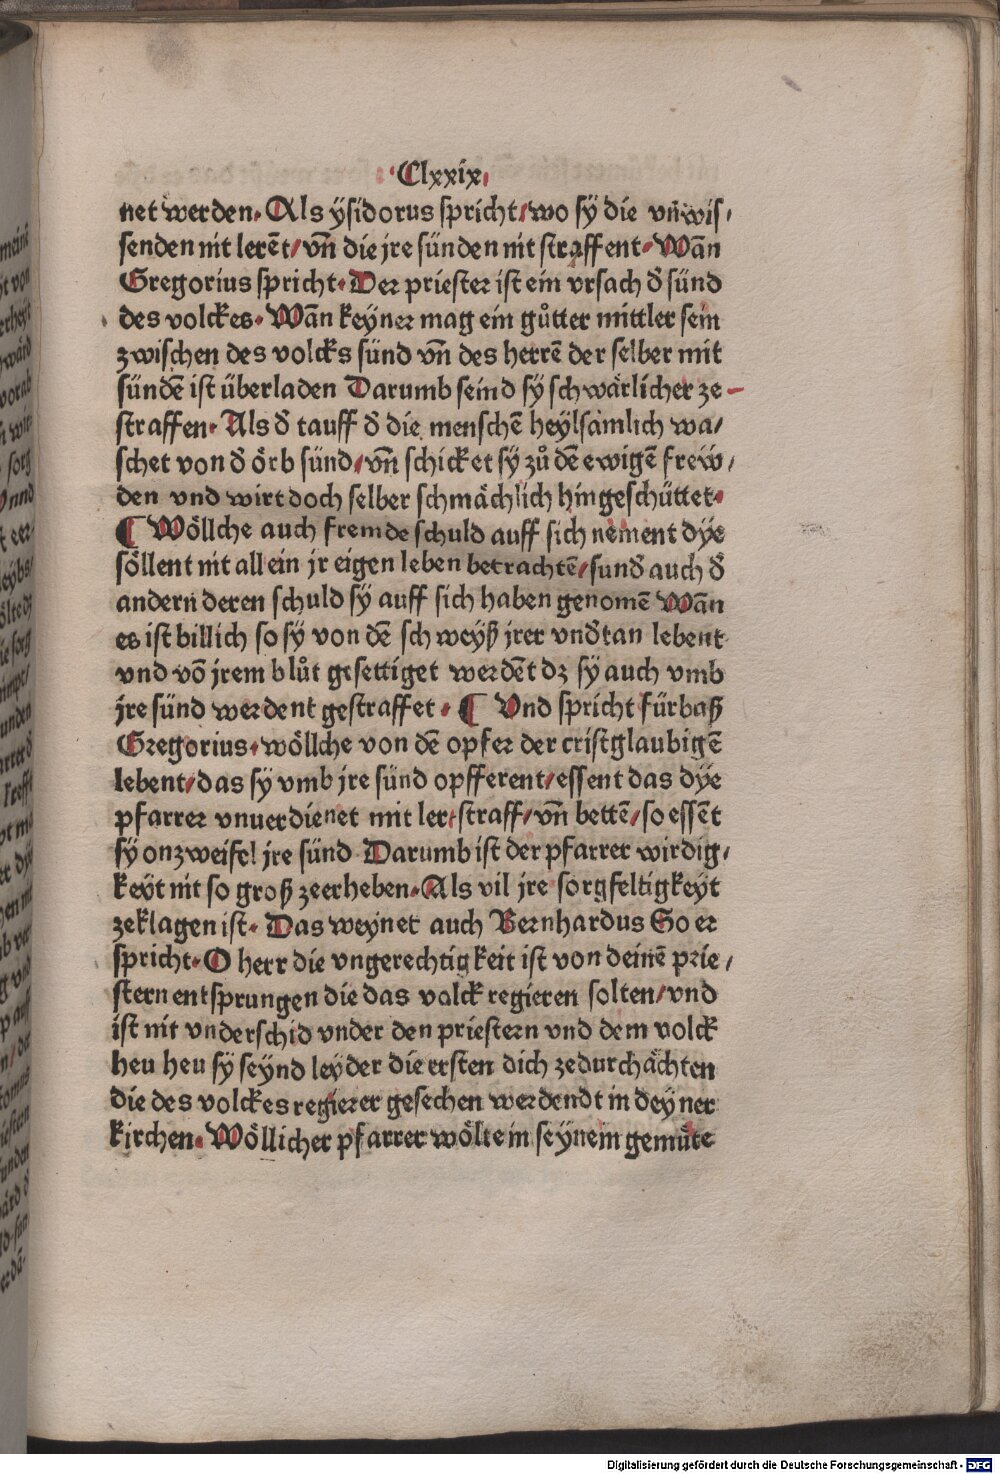 ·Clxxix·
net werden· Als ysidorus spricht/wo sy die vnwis/
senden nit lerēt/vn̄ die jre sünden nit straffent· Wān
Gregorius spricht· Der priester ist ein vrsach d̄ sünd
des volckes· Wān keyner mag ein gůtter mittler sein
zwischen des volcks sünd vn̄ des herrē der selber mit
sündē ist überladen Darumb seind sy schwärlicher ze-
straffen· Als d̄ tauff d̄ die menschē heylsamlich wa/
schet von d̄ örb sünd/vn̄ schicket sy zů dē ewigē frew/
den vnd wirt doch selber schmächlich hingeschüttet·
¶ Wöllche auch fremde schuld auff sich nement dye
söllent nit allein jr eigen leben betrachtē/sund̄ auch d̄
andern deren schuld sy auff sich haben genomē Wān
es ist billich so sy von dē schweyß jrer vnd̄tan lebent
vnd vō jrem blůt gesettiget werdēt dz sy auch vmb
jre sünd werdent gestraffet· ¶ Vnd spricht fürbaß
Gregorius· wöllche von dē opfer der cristglaubigē
lebent/das sy vmb jre sünd opfferent/essent das dye
pfarrer vnuerdienet mit ler/straff/vn̄ bettē/so essēt
sy onzweifel jre sünd Darumb ist der pfarrer wirdig/
keyt nit so groß zeerheben· Als vil jre sorgfeltigkeyt
zeklagen ist· Das weynet auch Bernhardus So er
spricht· O herr die vngerechtigkeit ist von deinē prie/
stern entsprungen die das volck regieren solten/vnd
ist nit vnderschid vnder den priestern vnd dem volck
heu heu sy seynd leyder die ersten dich zedurchächten
die des volckes regierer gesechen werdendt in deyner
kirchen· Wöllicher pfarrer wölte in seynem gemüte
Digitalisierung gefördert durch die Deutsche Forschungsgemeinschaft - DFG